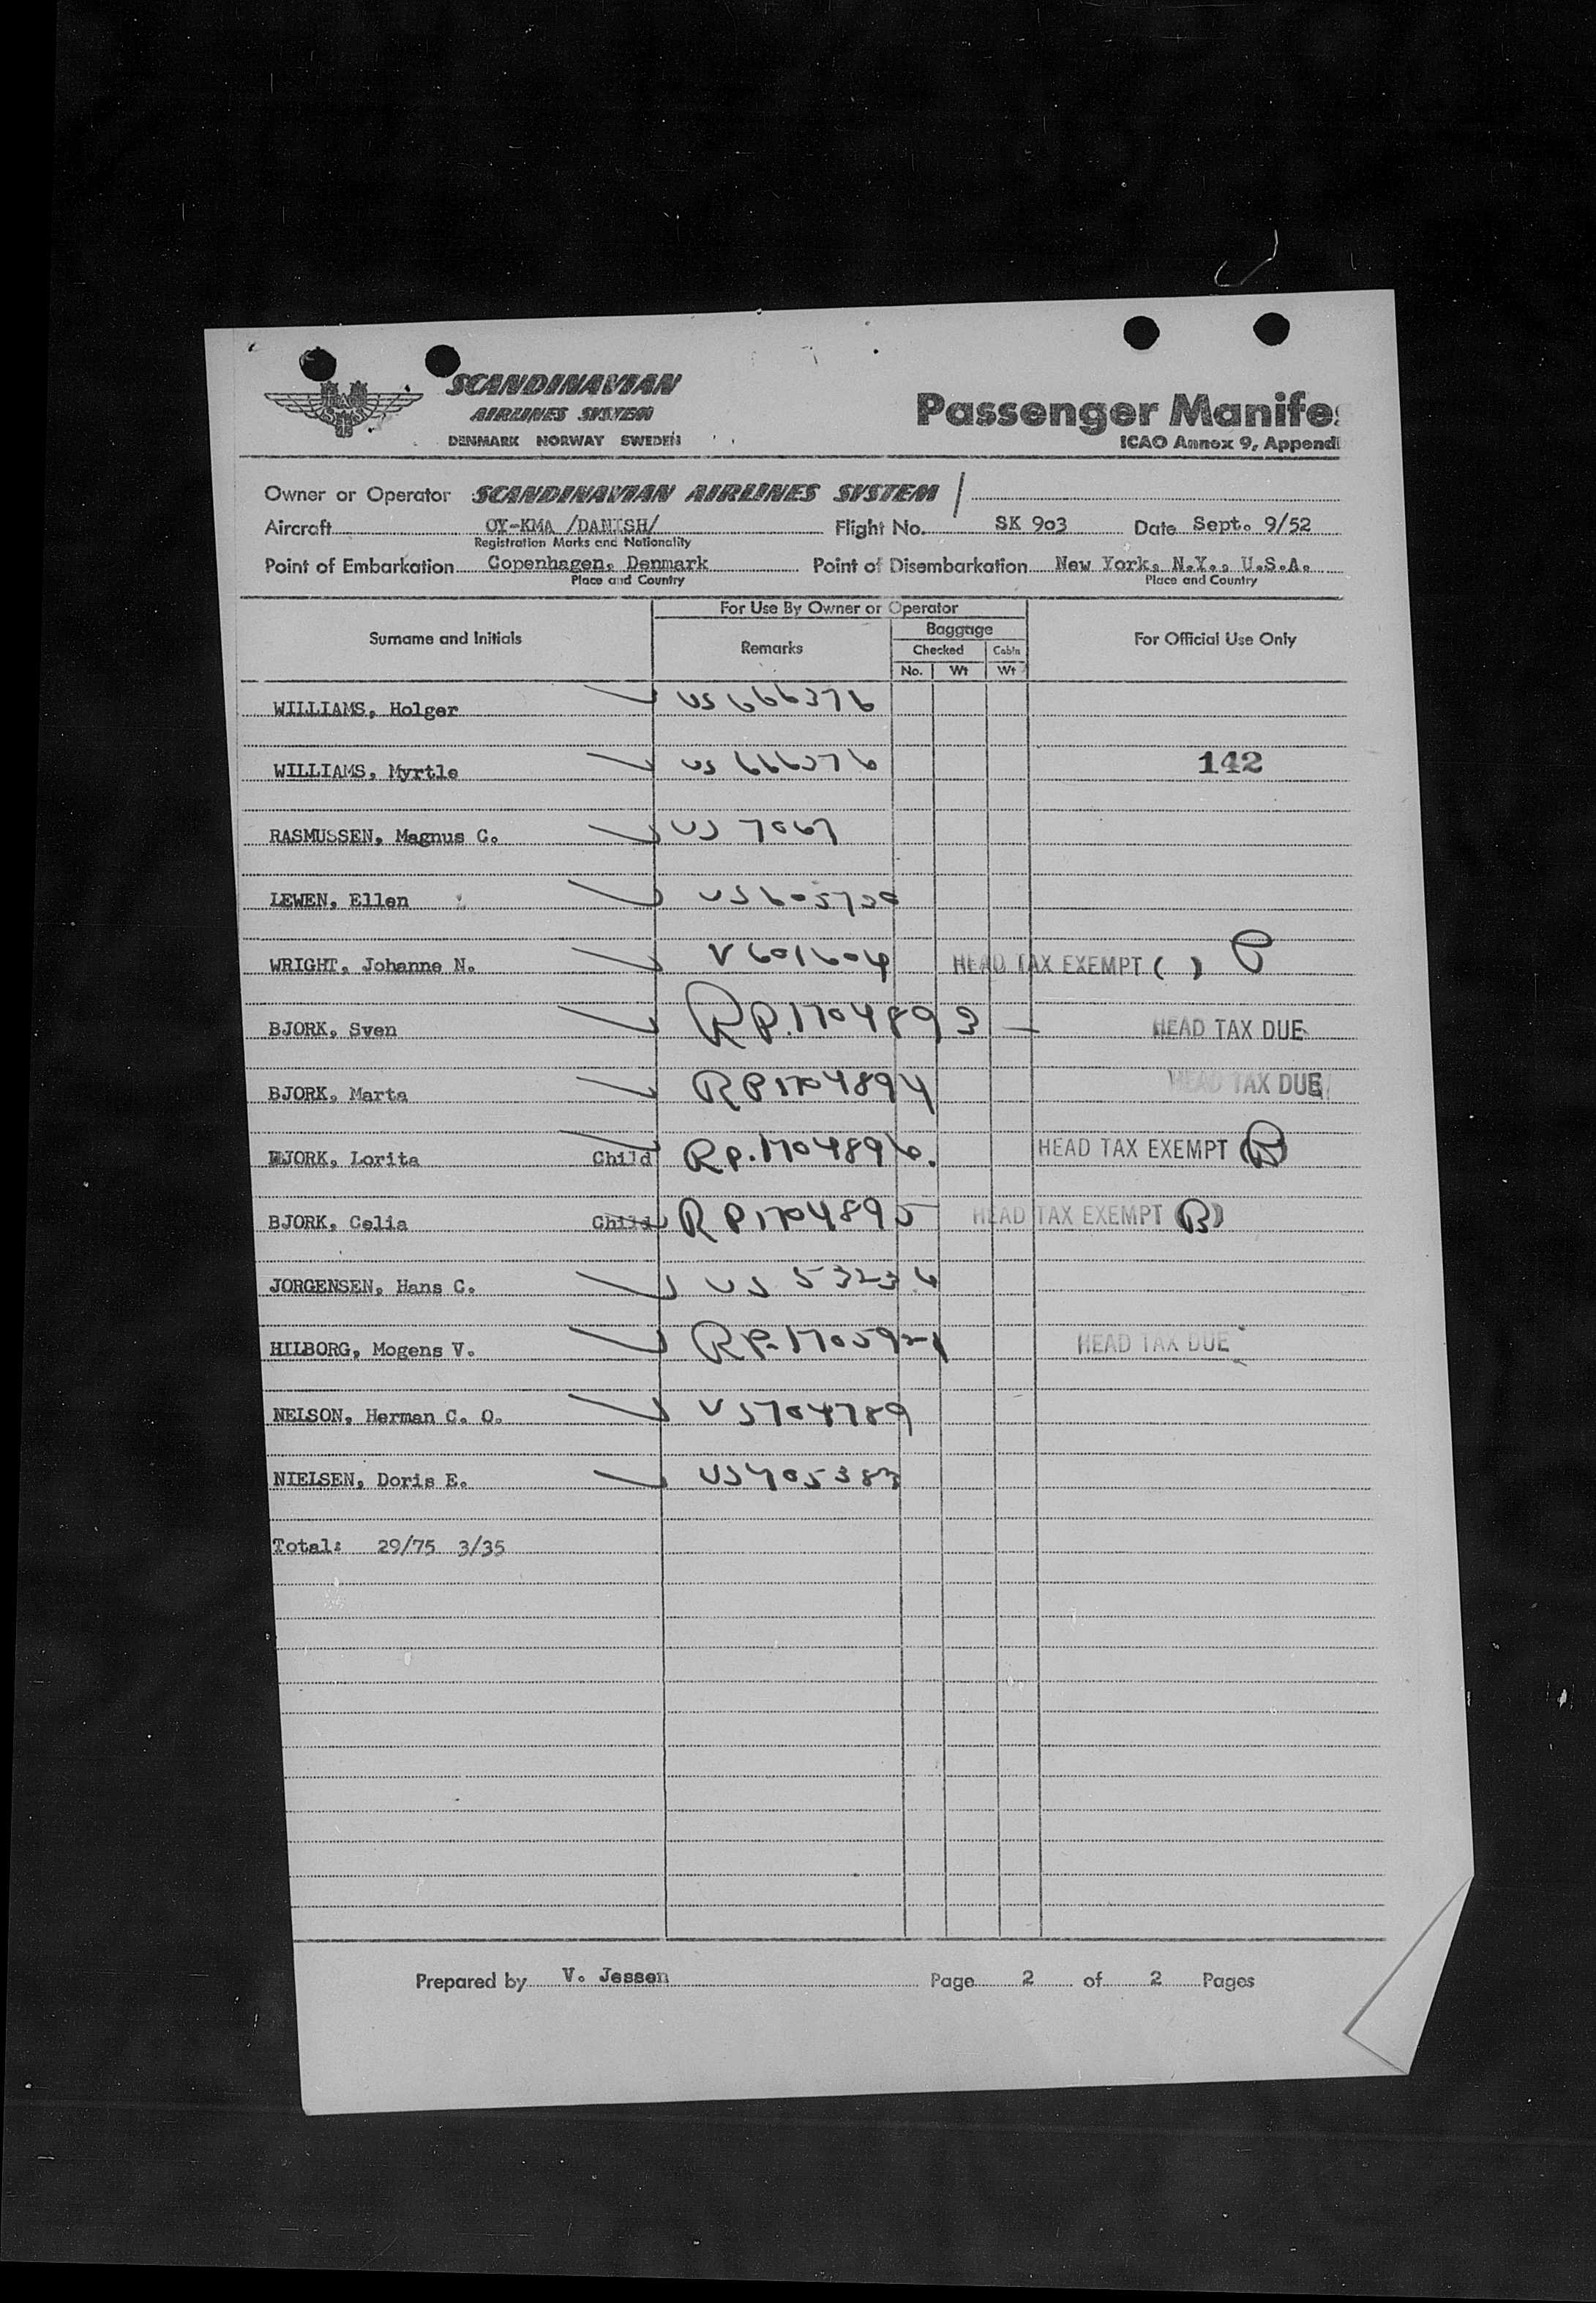 SCANDINAVIAN
AIRLINES SYSTEM
DENMARK NORWAY SWEDEN
Passenger Manifes
ICAO Annex 9, Appendi
Owner or Operator SCANDINAVIAN AIRLINES SYSTEM
Aircraft OY-KMA /DANISH/ Flight No. SK 903 Date Sept. 9/52
Registration Marks and Nationality
Point of Embarkation Copenhagen, Denmark Point of Disembarkation New York, N.Y., U.S.A.
Place and Country Place and Country
For Use By Owner or Operator
Surname and Initials Remarks Baggage For Official Use Only
Checked Cabin
No. Wt Wt
WILLIAMS, Holger US 666376
WILLIAMS, Myrtle US 666376 142
RASMUSSEN, Magnus C. US 7067
LEWEN, Ellen
WRIGHT, Johanne N. V 601604 HEAD TAX EXEMPT ( )
BJORK, Sven RP.1704893 HEAD TAX DUE
BJORK, Marta RP1704894 HEAD TAX DUE
BJORK, Lorita Child RP.1704896. HEAD TAX EXEMPT (B)
BJORK, Celia Child RP1704895 HEAD TAX EXEMPT (B)
JORGENSEN, Hans C. US 53236
HILBORG, Mogens V. RP.1705921 HEAD TAX DUE
NELSON, Herman C. O. US704789
NIELSEN, Doris E. US405383
Total: 29/75 3/35
Prepared by V. Jessen Page 2 of 2 Pages